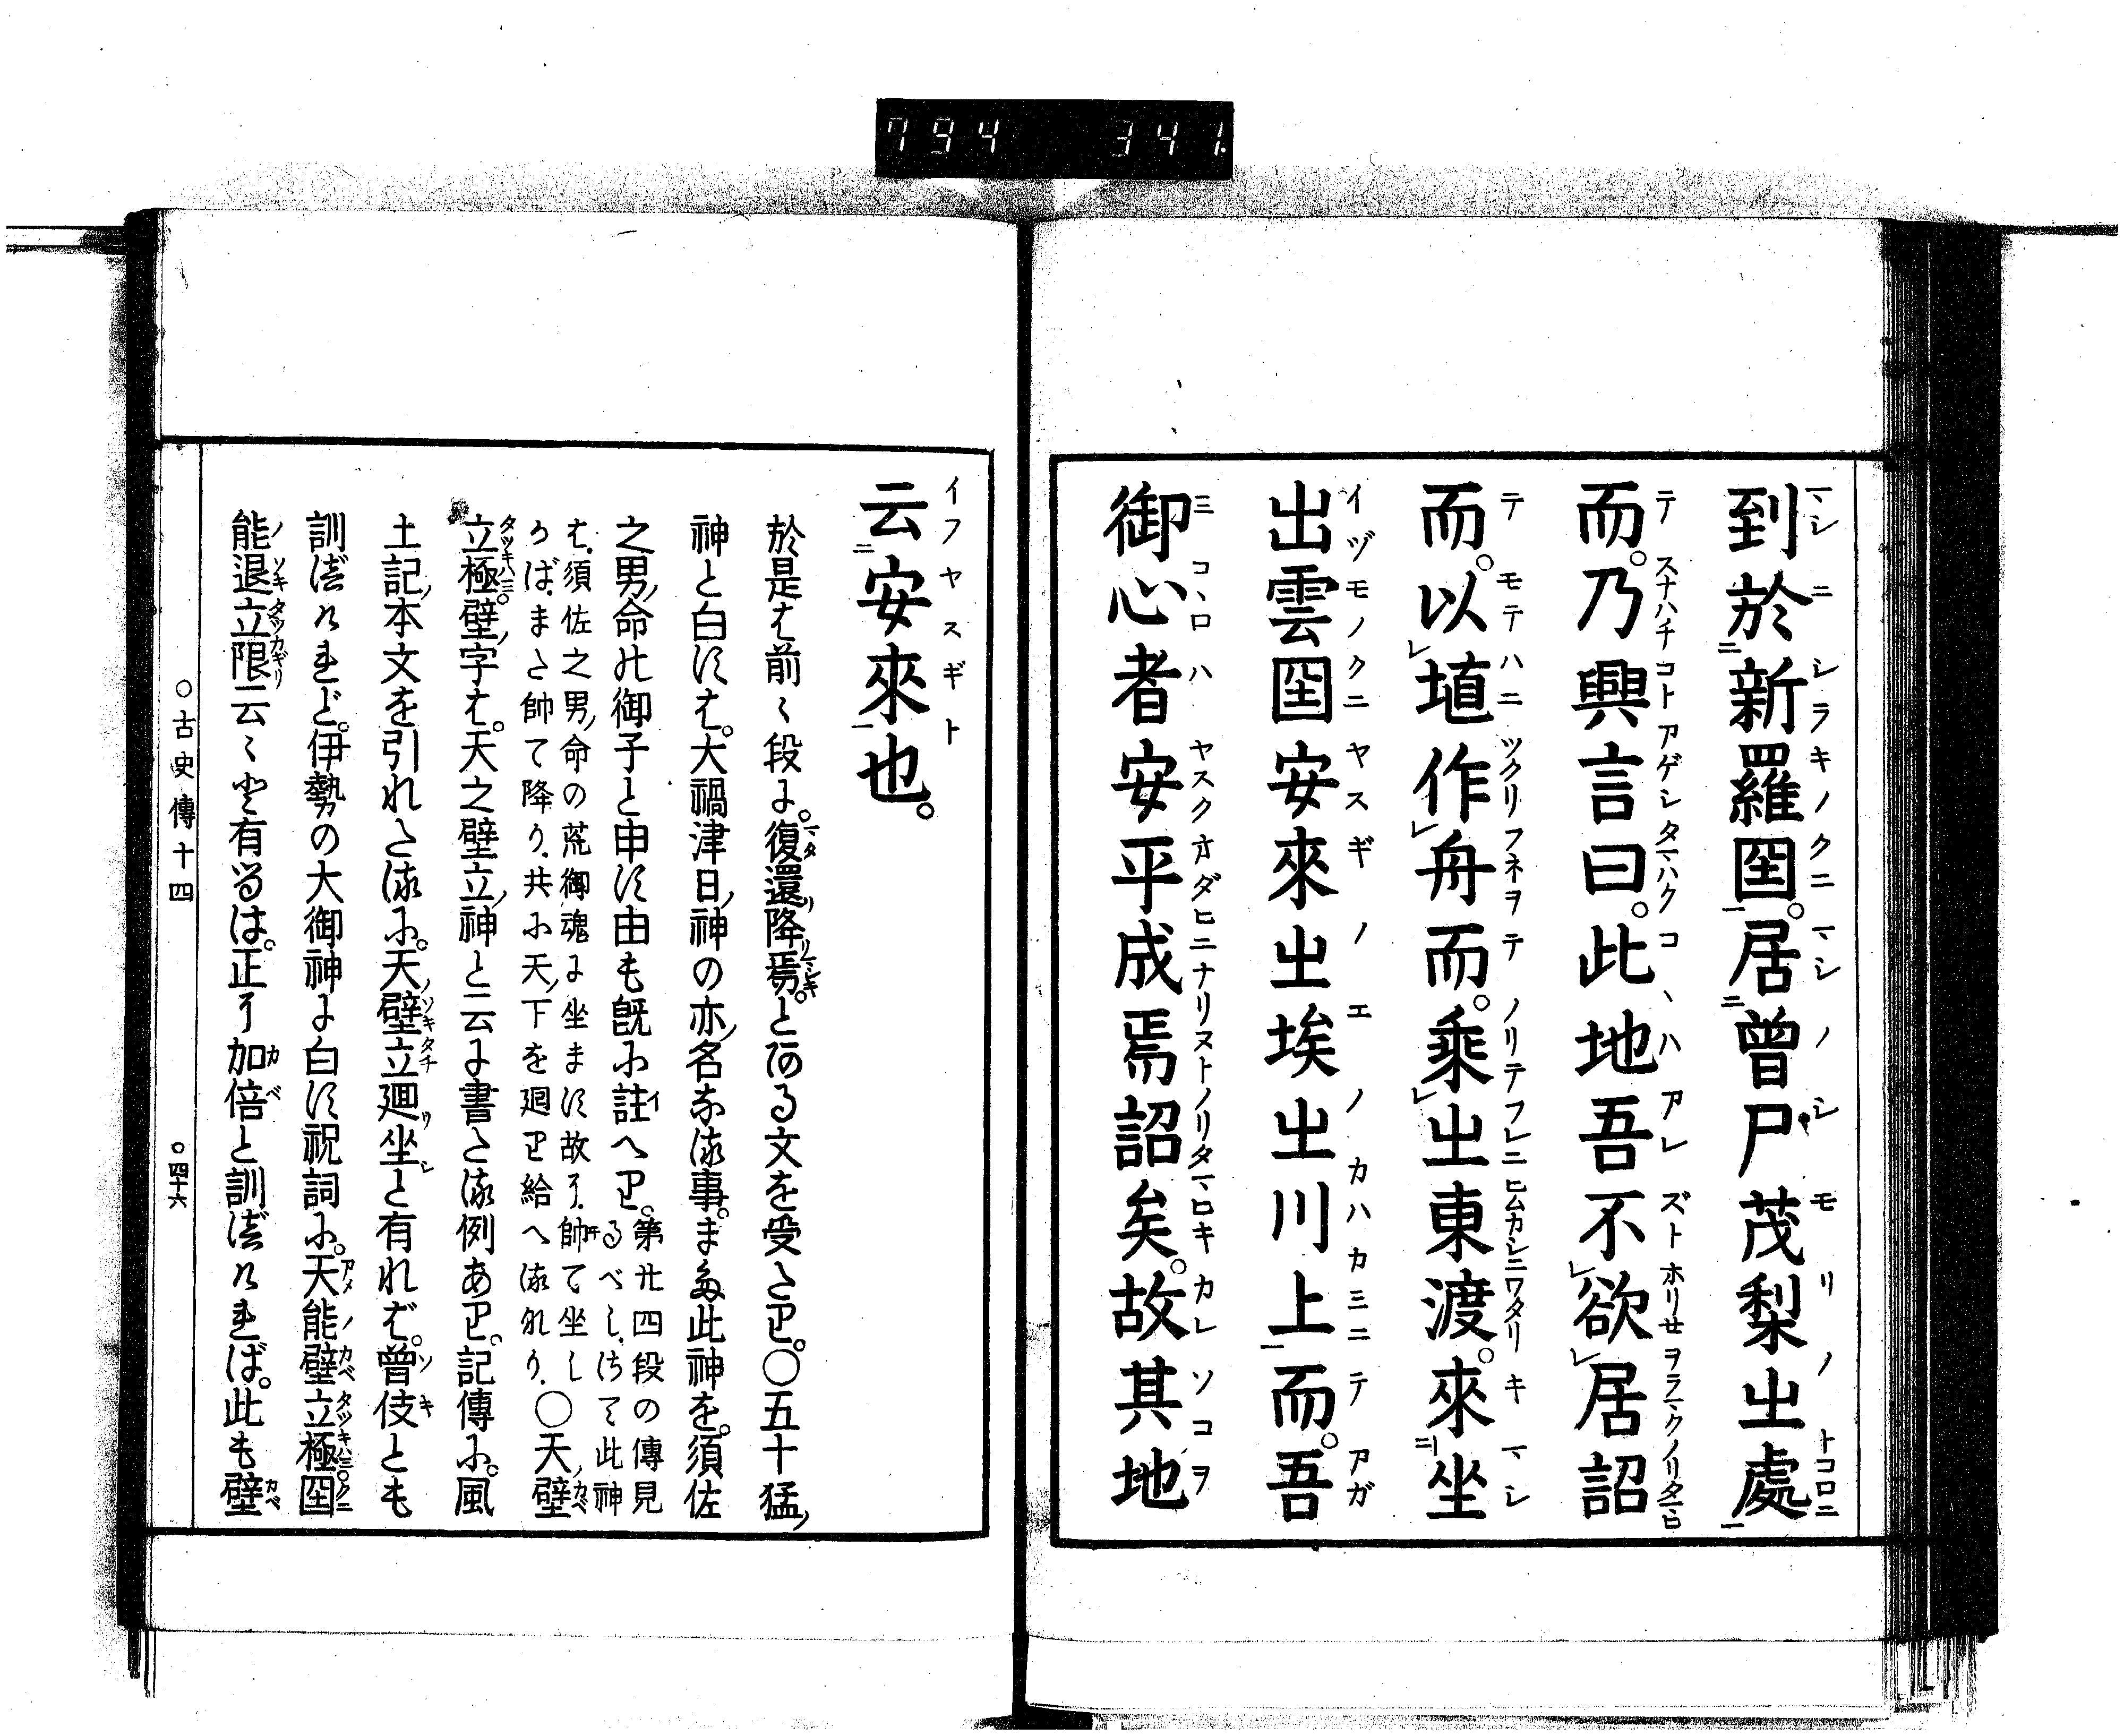 794 341.
到於新羅囯。居曾尸茂梨㞢處
而。乃興言曰。此地吾不欲居詔
而。以埴作舟而。乘㞢東渡。來坐
出雲囯安來㞢埃㞢川上而。吾
御心者安平成焉詔矣。故其地
云安來也。
於是は前々段に。復還降焉。とある文を受たり。〇五十猛
神と白すは。大禍津日神の亦名なる事。また此神を。須佐
之男命の御子と申す由も既に註へり。第廿四段の傳見
るべし、さて此神
は、須佐之男命の荒御魂に坐ます故に、帥て坐し
つらば、また帥て降り、共に天下を廻り給へるなり、〇天壁
立極壁字は。天之壁立神と云に書たる例あり。記傳に。風
土記本文を引れたるに。天壁立廻坐と有れば。曾伎とも
訓べけれど。伊勢の大御神に白す祝詞に。天能壁立極囯
能退立限云々と有るは。正く加倍と訓べければ。此も壁
〇古史傳十四 〇四十六